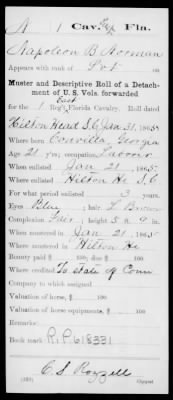 A | 1 | Cav. | Fla.
Napoleon B Norman
Appears with rank of Pvt on
Muster and Descriptive Roll of a Detachment of U. S. Vols. forwarded
East
for the 1 Reg't Florida Cavalry. Roll dated
Hilton Head S.C. Jan 31, 1865.
Where born Georgia
Age 21 y'rs; occupation Labourer
When enlisted Jan 21, 1865.
Where enlisted Hilton He S.C
For what period enlisted 3 years.
Eyes Blue; hair L Brown
Complexion Fair; height 5 ft. 9 in.
When mustered in Jan 21, 1865.
Where mustered in Hilton He
Bounty paid $ 100; due $ 100
Where credited To State of Conn
Company to which assigned
Valuation of horse, $ 100
Valuation of horse equipments, $ 100
Remarks:
Book mark: R. P. 618331
(339) Copyist.